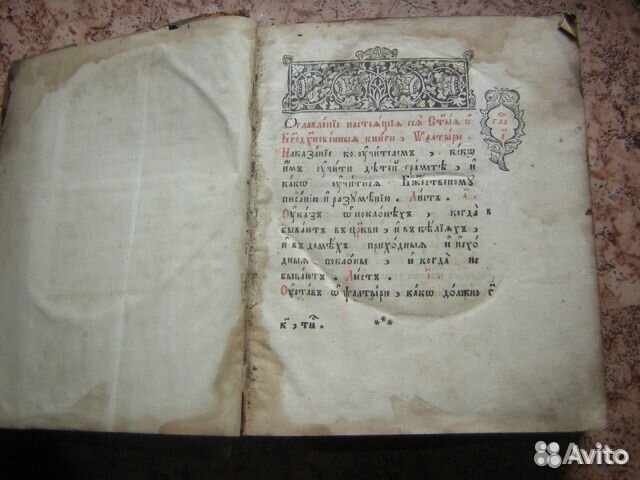 Ѻглавленїе настоѧщїѧ сеѧ̀ ст҃ы́ѧ и҆
Бг҃одꙋхнове́нныѧ книги , Ѱалтыри .
Наказанїе ко оу҆чителємъ , какѡ
и҆мъ оу҆чити дѣте́й грамотѣ , и҆
какѡ оу҆читисѧ Бж҃ественомꙋ
писанїю и҆ разꙋмѣнїю . Листъ . а҃
Оу҆казъ ѡ҆ поклонѣхъ , когда в
быва́ютъ въ цр҃кви , и҆ въ ке́лїѧхъ ,
и҆ въ домѣхъ приходныѧ и҆ и҆схо
дныѧ поклоны , и҆ когда̀ не
быва́ютъ . Листъ .
Оу҆ста́въ ѡ҆ ѱалты́ри , какѡ до́лжно
***
Avito